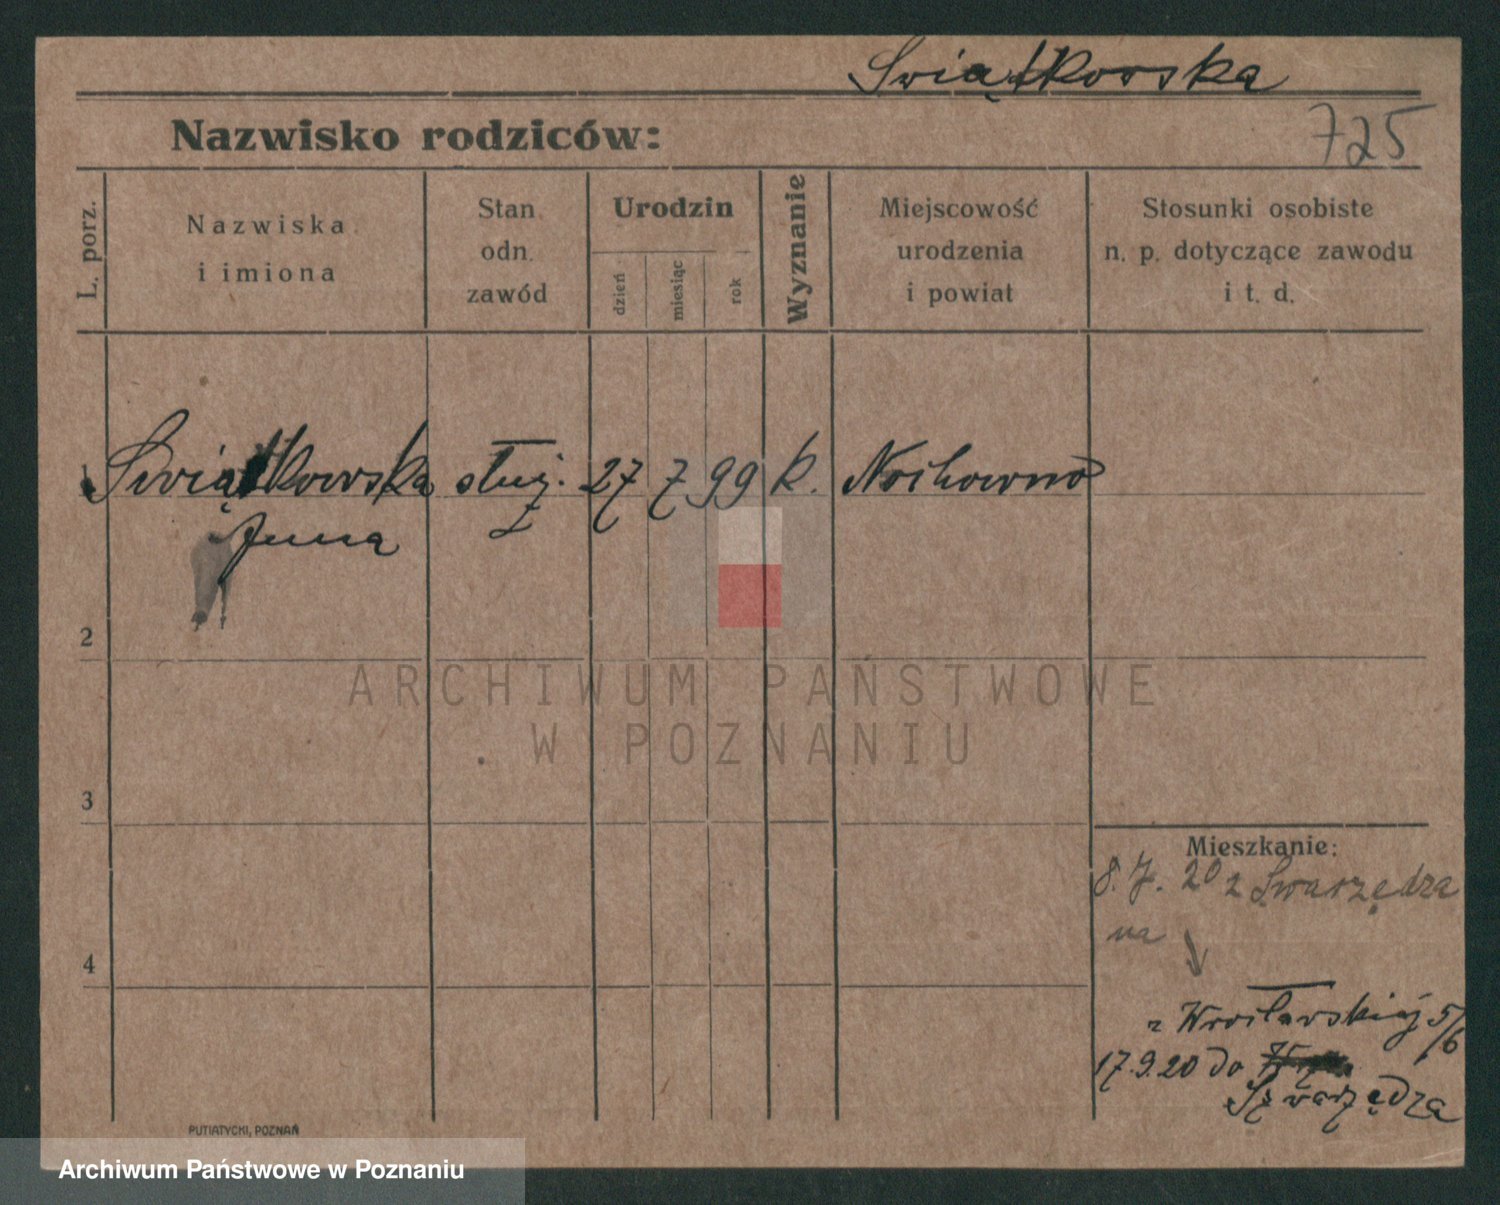 Swiątkowska
Nazwisko rodziców:
725
L. porz.
Nazwiska
i imiona
Stan
odn.
zawód
Urodzin
dzień
miesiąc
rok
Wyznanie
Miejscowość
urodzenia
i powiat
Stosunki osobiste
n. p. dotyczące zawodu
i t. d.
1 Swiątkowska służ. 27 7 99 k. Nochowno
Anna
2
ARCHIWUM PAŃSTWOWE
W POZNANIU
3
Mieszkanie:
8. 7. 20 z Swarzędza
na
4
z Wrocławskiej 5/6
17.9.20 do
Swarzędza
PUTIATYCKI, POZNAŃ
Archiwum Państwowe w Poznaniu